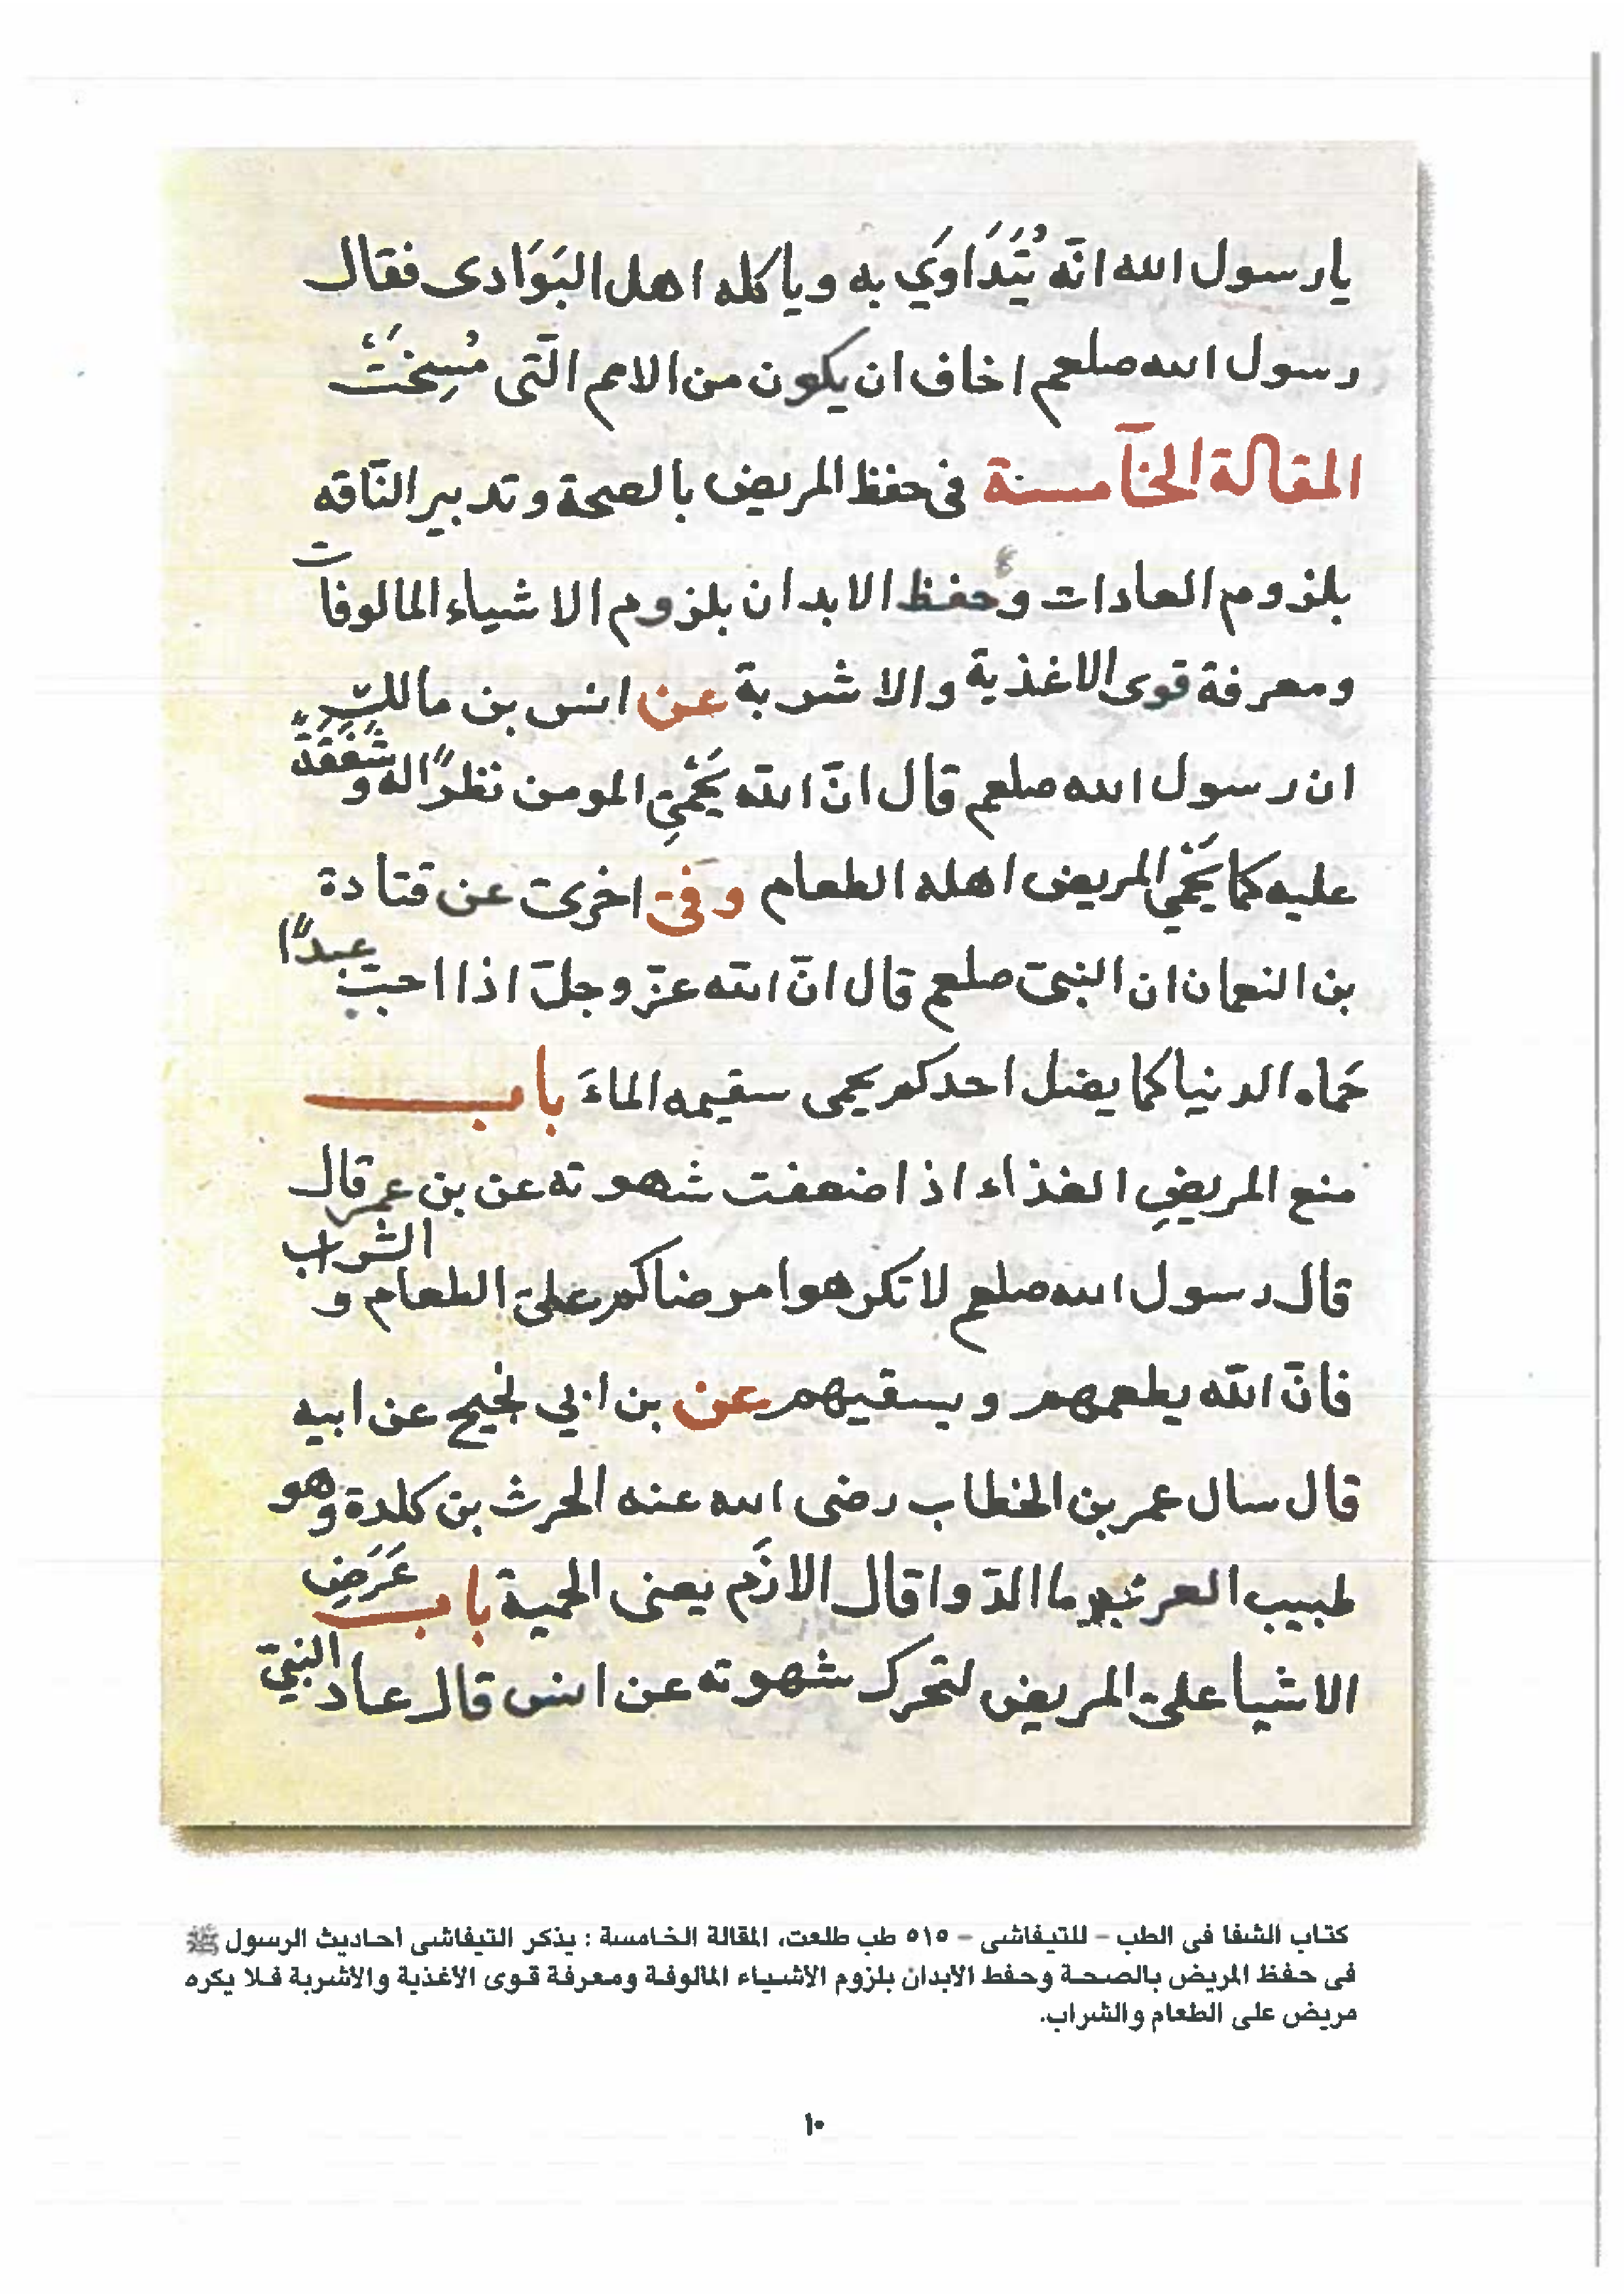 يا رسول الله انّه يُتَدَاوَي به وياكله اهل البَوَادى فقال
رسول الله صلعم اخاف ان يكون من الامم الّتى مُسِخَتْ
المقالة الخآمسة فى حفظ المريض بالصحة وتدبير النّاقه
بلزوم العادات وحفظ الابدان بلزوم الاشياء المالوفات
ومعرفة قوى الاغذية والاشربة عن انس بن مالك
ان رسول الله صلعم قال انّ الله يَحْمِي المومن نظرًا له وشَفَقَةً
عليه كما يَحْمي المريض اهله الطعام وفى اخرى عن قتادة
بن النعمان ان النبى صلعم قال انّ الله عزّ وجلّ اذا احبّ عبدًا
حَماه الدنيا كما يضل احدكم يحمى سقيمه الماءَ باب
منع المريضِ الغذاء اذا ضعفت شهوته عن بن عمر قال
قال رسول الله صلعم لا تكرهوا مرضاكم على الطعام والشراب
فانّ الله يطعمهم ويسقيهم عن بن ابي نجيح عن ابيه
قال سال عمر بن الخطاب رضى الله عنه الحرث بن كلدة وهو
طبيب العرب ما الدّوا قال الازَم يعنى الحمية باب عَرَضِ
الاشيا على المريض لتحرك شهوته عن انس قال عاد النبى
كتاب الشفا فى الطب – للتيفاشى – ٥١٥ طب طلعت، المقالة الخامسة : يذكر التيفاشى احاديث الرسول ﷺ
فى حفظ المريض بالصحة وحفط الابدان بلزوم الأشياء المالوفة ومعرفة قوى الأغذية والأشربة فلا يكره
مريض على الطعام والشراب.
١٠